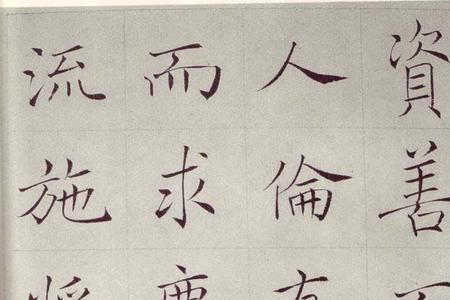 資善
人倫
而求
流施